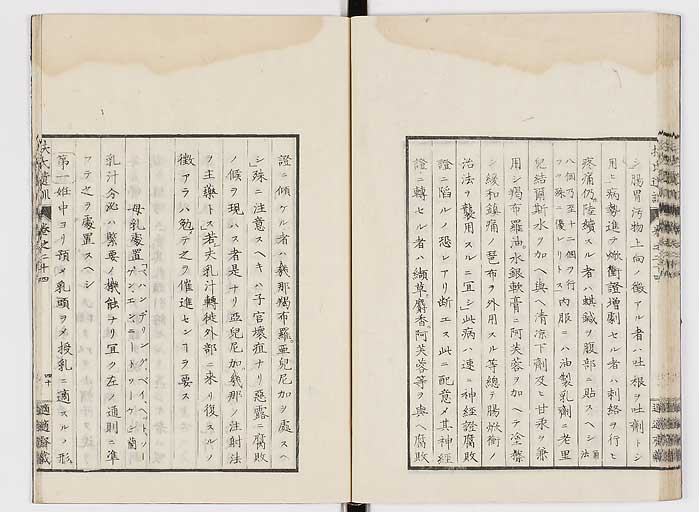 シ腸胃汚物上向ノ徴アル者ハ吐根ヲ吐劑トシ
用ユ病勢進テ焮衝證増劇セル者ハ刺絡ヲ行ヒ
疼痛仍陸續スル者ハ蜞鍼ヲ腹部ニ貼スヘシ
八個乃至十二個ヲ行フヲ殊ニ優レリトス内服ニハ油製乳劑ニ老里
兒結爾斯水ヲ加ヘ與ヘ清凉下劑及ヒ甘汞ヲ兼
用シ羯布羅油水銀軟膏ニ阿芙蓉ヲ加ヘテ塗擦
シ緩和鎮痛ノ琶布ヲ外用スル等總テ腸焮衝ノ
治法ヲ襲用スルニ宜シ此病ハ速ニ神經證腐敗
證ニ陷ルノ恐レアリ斷エス此ニ配意メ其神經
證ニ轉セル者ハ纈草麝香阿芙蓉等ヲ與ヘ腐敗
證ニ傾ケル者ハ幾那羯布羅亜兒尼加ニ處スヘ
シ殊ニ注意スヘキハ子宮壞疽ナリ惡露ニ腐敗
ノ候ヲ現ハス者是ナリ亞兒尼加幾那ノ注射法
ヲ主藥トス若夫乳汁轉徙外部ニ来リ復スルノ
徴アラハ勉テ之ヲ催進センヿヲ要ス
母乳處置
乳汁分泌ハ緊要ノ機觸ナリ宜ク左ノ通則ニ準
フテ之ヲ處置スヘシ
第一姙中ヨリ預メ乳頭ヲメ授乳ニ適スルノ形
扶氏遺訓 卷之二十四
四十 適適齋藏